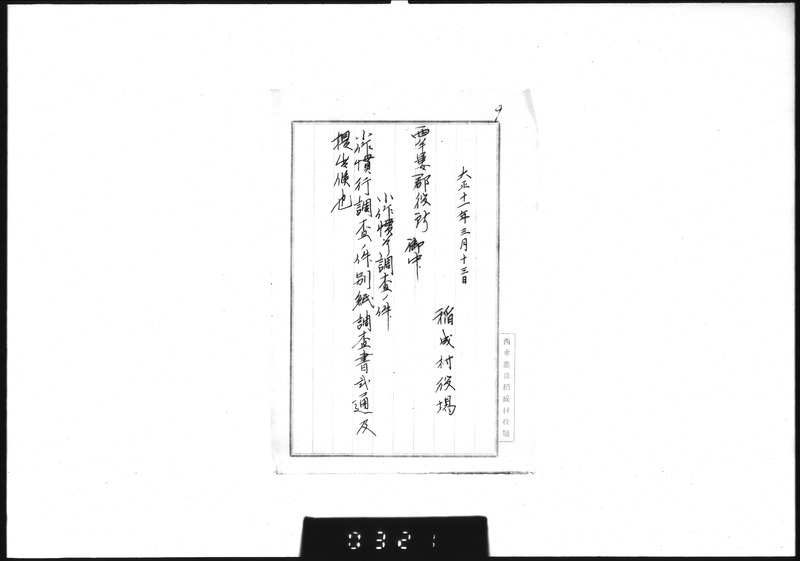 大正十一年三月十三日
稲成村役場
西牟婁郡役所 御中
小作慣行調査ノ件
小作慣行調査ノ件別紙調査書弐通及
提出候也
西牟婁郡稲成村役場
0321